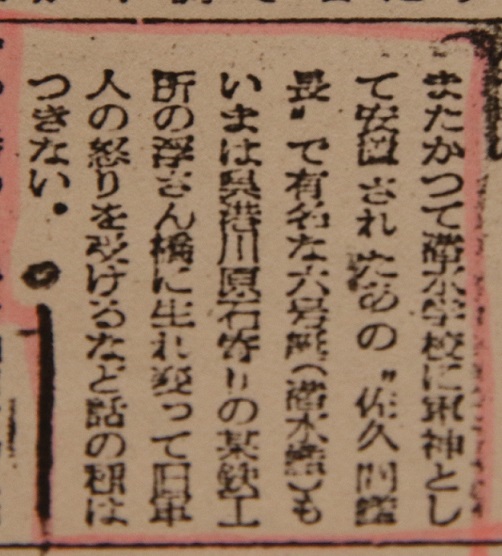 またかつて潜水学校に軍神とし
て安置されたあの〝佐久間艦
長〟で有名な六号艇(潜水艦)も
いまは呉港川原石寄りの某鉄工
所の浮さん橋に生れ変って旧軍
人の怒りを受けるなど話の種は
つきない。